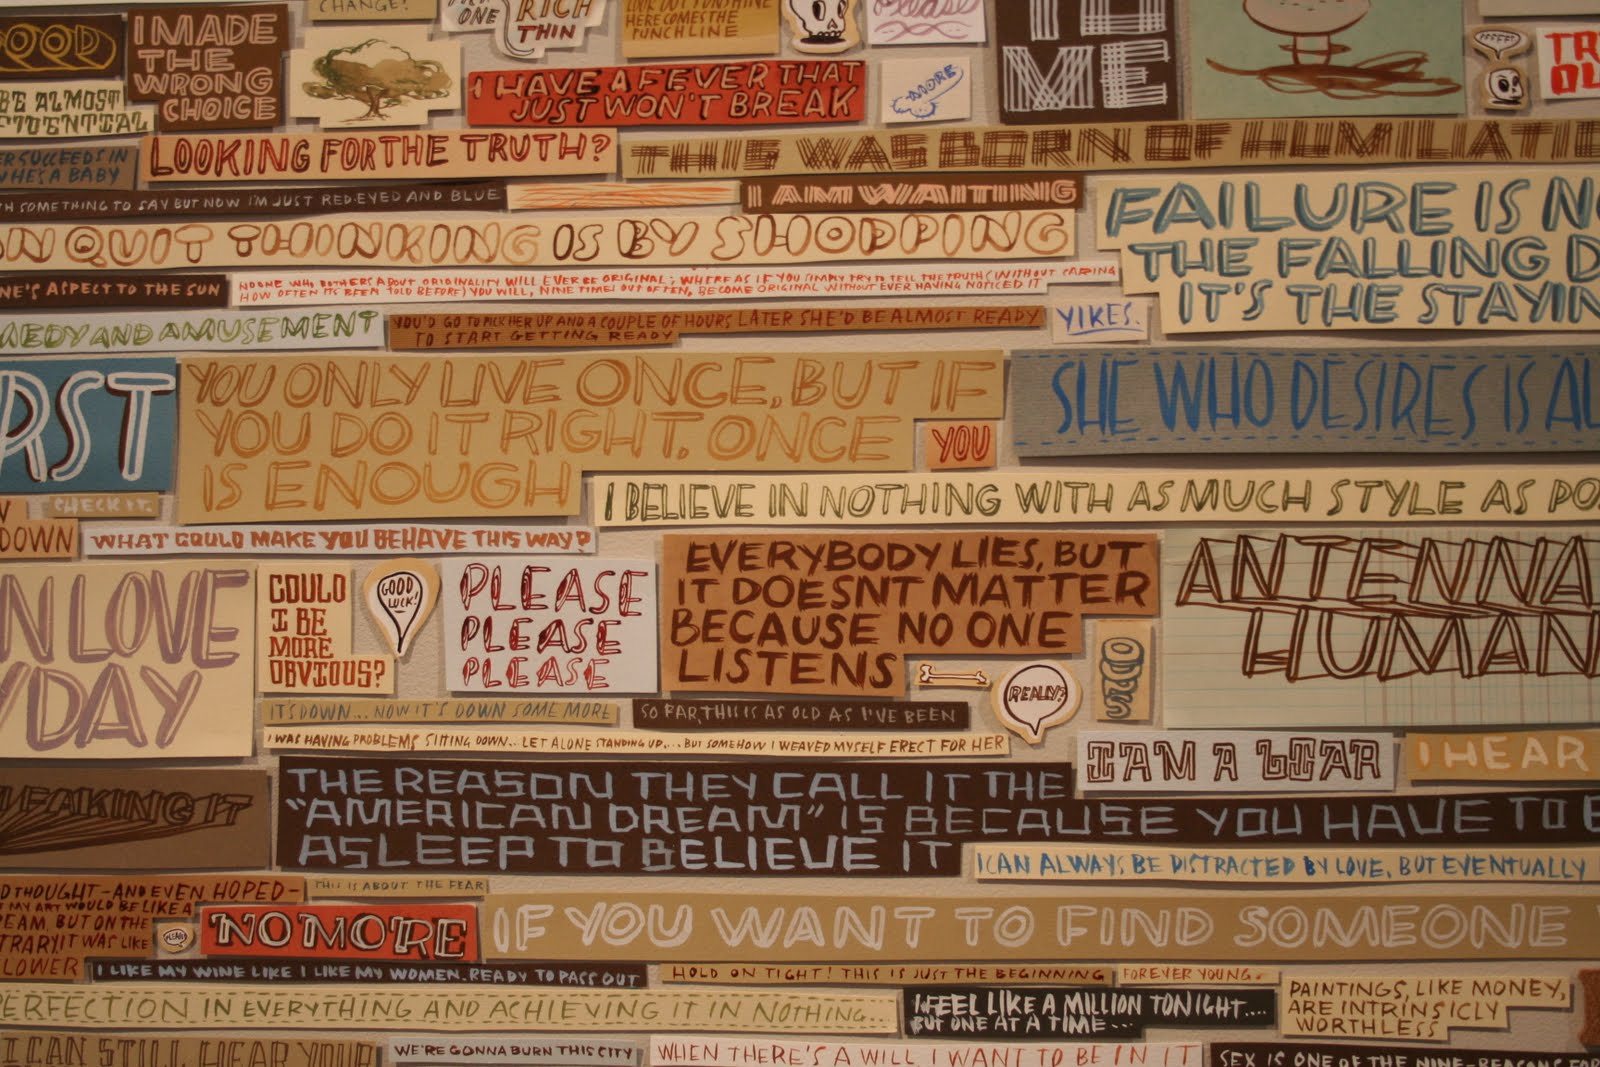 CHANGE?
ONE RICH
THIN
HERE COMES THE
PUNCHLINE
Please
ME
I MADE
THE
WRONG
CHOICE
I HAVE A FEVER THAT
JUST WON'T BREAK
MORE
BE ALMOST
LOOKING FOR THE TRUTH?
THIS WAS BORN OF HUMILIATIO
ER SUCCEEDS IN
WHE'S A BABY
TH SOMETHING TO SAY BUT NOW I'M JUST RED-EYED AND BLUE
I AM WAITING
FAILURE IS NO
THE FALLING D
IT'S THE STAYIN
N QUIT THINKING IS BY SHOPPING
NE'S ASPECT TO THE SUN
NO ONE WHO BOTHERS ABOUT ORIGINALITY WILL EVER BE ORIGINAL; WHERE AS IF YOU SIMPLY TRY TO TELL THE TRUTH (WITHOUT CARRING
HOW OFTEN ITS BEEN TOLD BEFORE) YOU WILL, NINE TIMES OUT OF TEN, BECOME ORIGINAL WITHOUT EVER HAVING NOTICED IT
MEDY AND AMUSEMENT
YOU'D GO TO PICK HER UP AND A COUPLE OF HOURS LATER SHE'D BE ALMOST READY
TO START GETTING READY
YIKES.
RST
YOU ONLY LIVE ONCE, BUT IF
YOU DO IT RIGHT. ONCE
IS ENOUGH
YOU
SHE WHO DESIRES IS AL
CHECK IT.
I BELIEVE IN NOTHING WITH AS MUCH STYLE AS PO
DOWN
WHAT COULD MAKE YOU BEHAVE THIS WAY?
N LOVE
YDAY
COULD
I BE
MORE
OBVIOUS?
GOOD
LUCK!
PLEASE
PLEASE
PLEASE
EVERYBODY LIES, BUT
IT DOESNT MATTER
BECAUSE NO ONE
LISTENS
REALLY?
ANTENNA
HUMAN
IT'S DOWN... NOW IT'S DOWN SOME MORE
SO FAR, THIS IS AS OLD AS I'VE BEEN
I WAS HAVING PROBLEMS SITTING DOWN... LET ALONE STANDING UP... BUT SOMEHOW I WEAVED MYSELF ERECT FOR HER
I AM A LIAR
I HEAR
FAKING IT
THE REASON THEY CALL IT THE
"AMERICAN DREAM" IS BECAUSE YOU HAVE TO B
ASLEEP TO BELIEVE IT
I CAN ALWAYS BE DISTRACTED BY LOVE, BUT EVENTUALLY
D THOUGHT-AND EVEN HOPED-
T MY ART WOULD BE LIKE A
REAM, BUT ON THE
TRARY IT WAS LIKE
LOWER
THIS IS ABOUT THE FEAR
NO MO'RE
IF YOU WANT TO FIND SOMEONE
I LIKE MY WINE LIKE I LIKE MY WOMEN. READY TO PASS OUT
HOLD ON TIGHT! THIS IS JUST THE BEGINNING
FOREVER YOUNG.
ERFECTION IN EVERYTHING AND ACHIEVING IT IN NOTHING...
I FEEL LIKE A MILLION TONIGHT....
BUT ONE AT A TIME...
PAINTINGS, LIKE MONEY,
ARE INTRINSICLY
WORTHLESS
I CAN STILL HEAR YOUR
WE'RE GONNA BURN THIS CITY
WHEN THERE'S A WILL I WANT TO BE IN IT
SEX IS ONE OF THE NINE-REASONS FOR